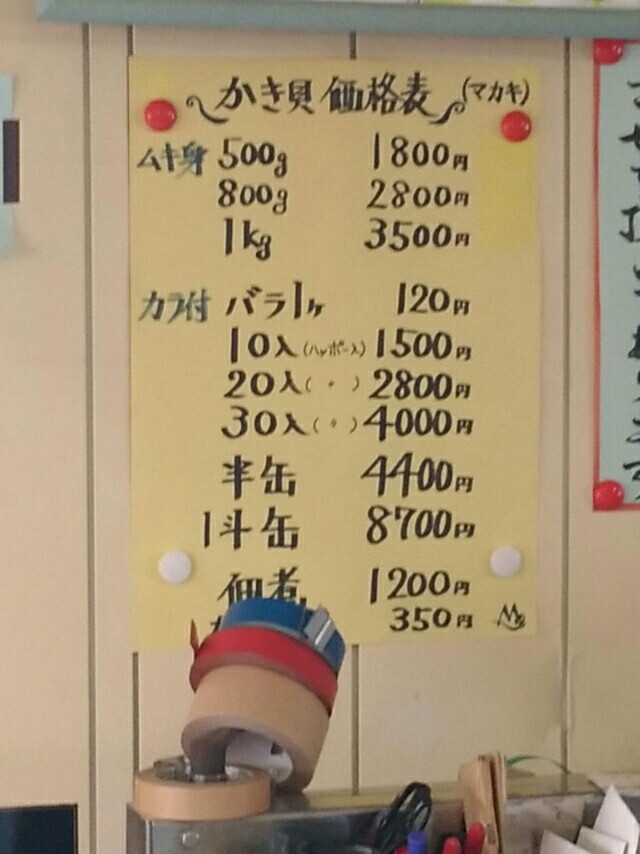 かき貝価格表 (マカキ)
ムキ身 500g 1800円
800g 2800円
1kg 3500円
カラ付 バラ1ヶ 120円
10入(ハッポー入) 1500円
20入( 〃 ) 2800円
30入( 〃 ) 4000円
半缶 4400円
1斗缶 8700円
佃煮 1200円
350円